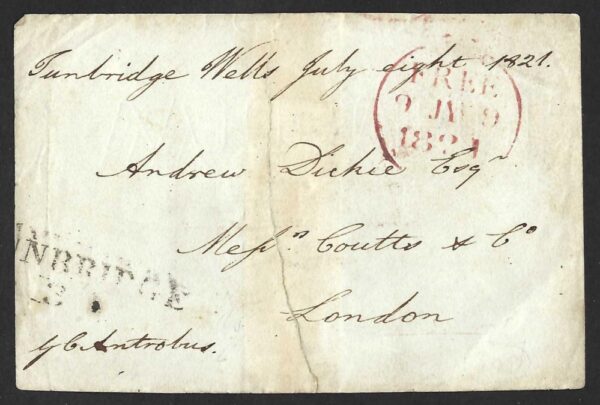 Tunbridge Wells July eight 1821.
FREE
9 JY 9
1821
Andrew Dickie Esqr
Messrs Coutts & Co
London
UNBRIDGE
G C Antrobus.